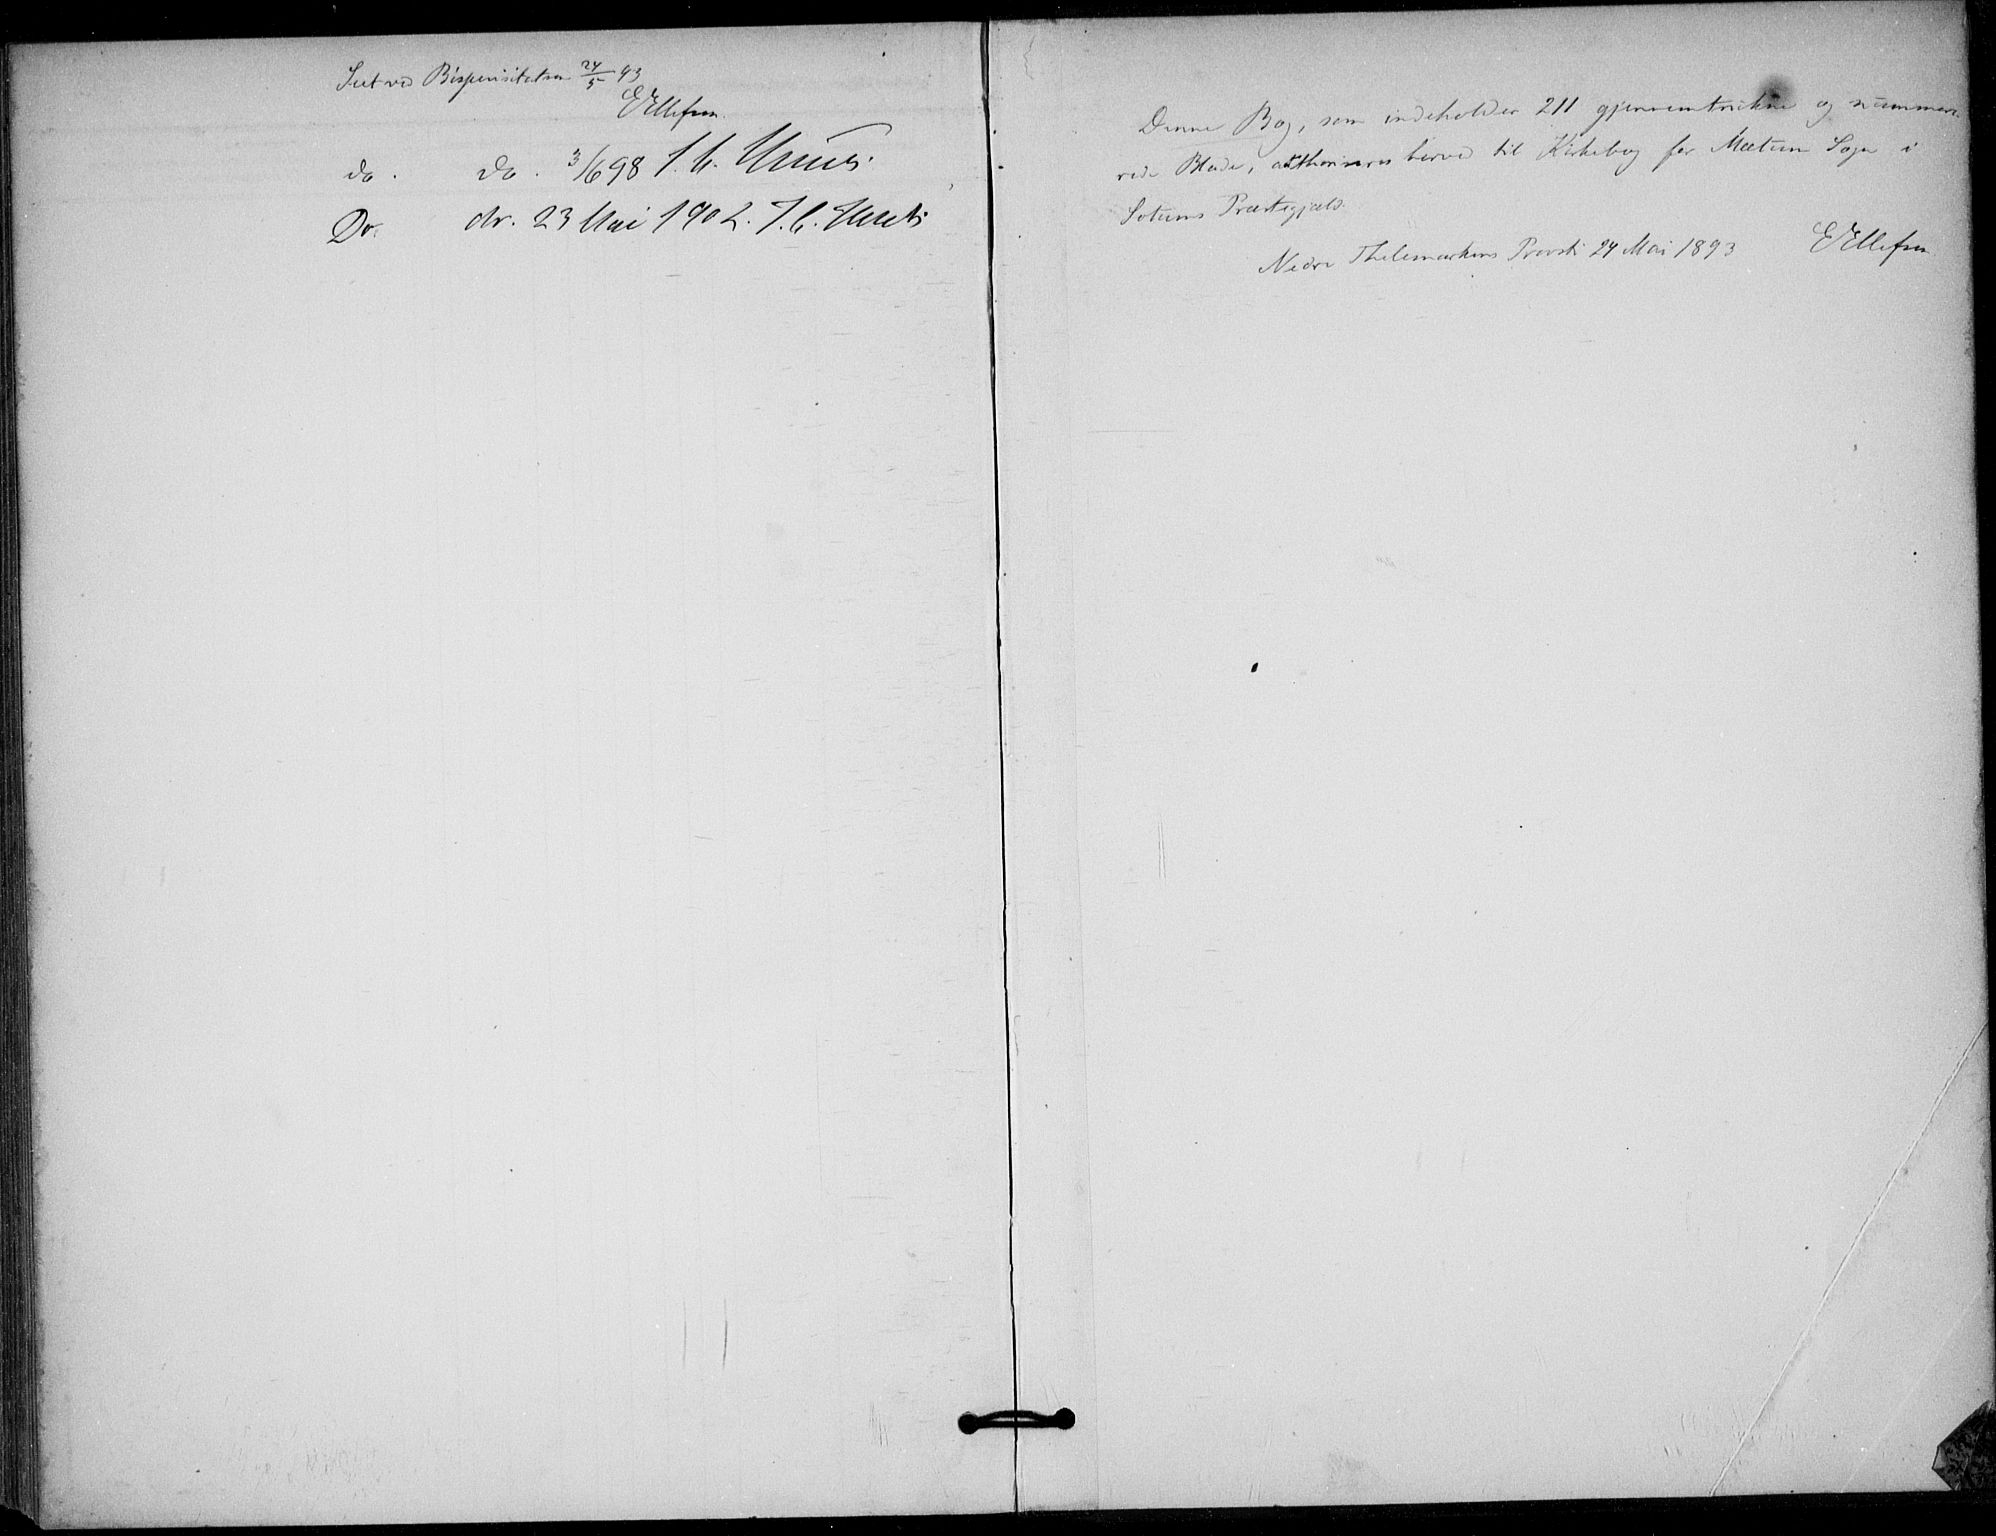 Seet ved Bispevisitatsen 24/5 93
E Ellefsen.
do. do. 3/6 98 J. C. Heuch.
Do. do. 23 Mai 1902. J. C. Heuch
Denne Bog, som indeholder 211 gjennemtrukne og nummere-
rede Blade, authoriseres herved til Kirkebog for Mælum Sogn i
Solums Præstegjæld.
Nedre Thelemarkens Provsti 24 Mai 1893 E Ellefsen